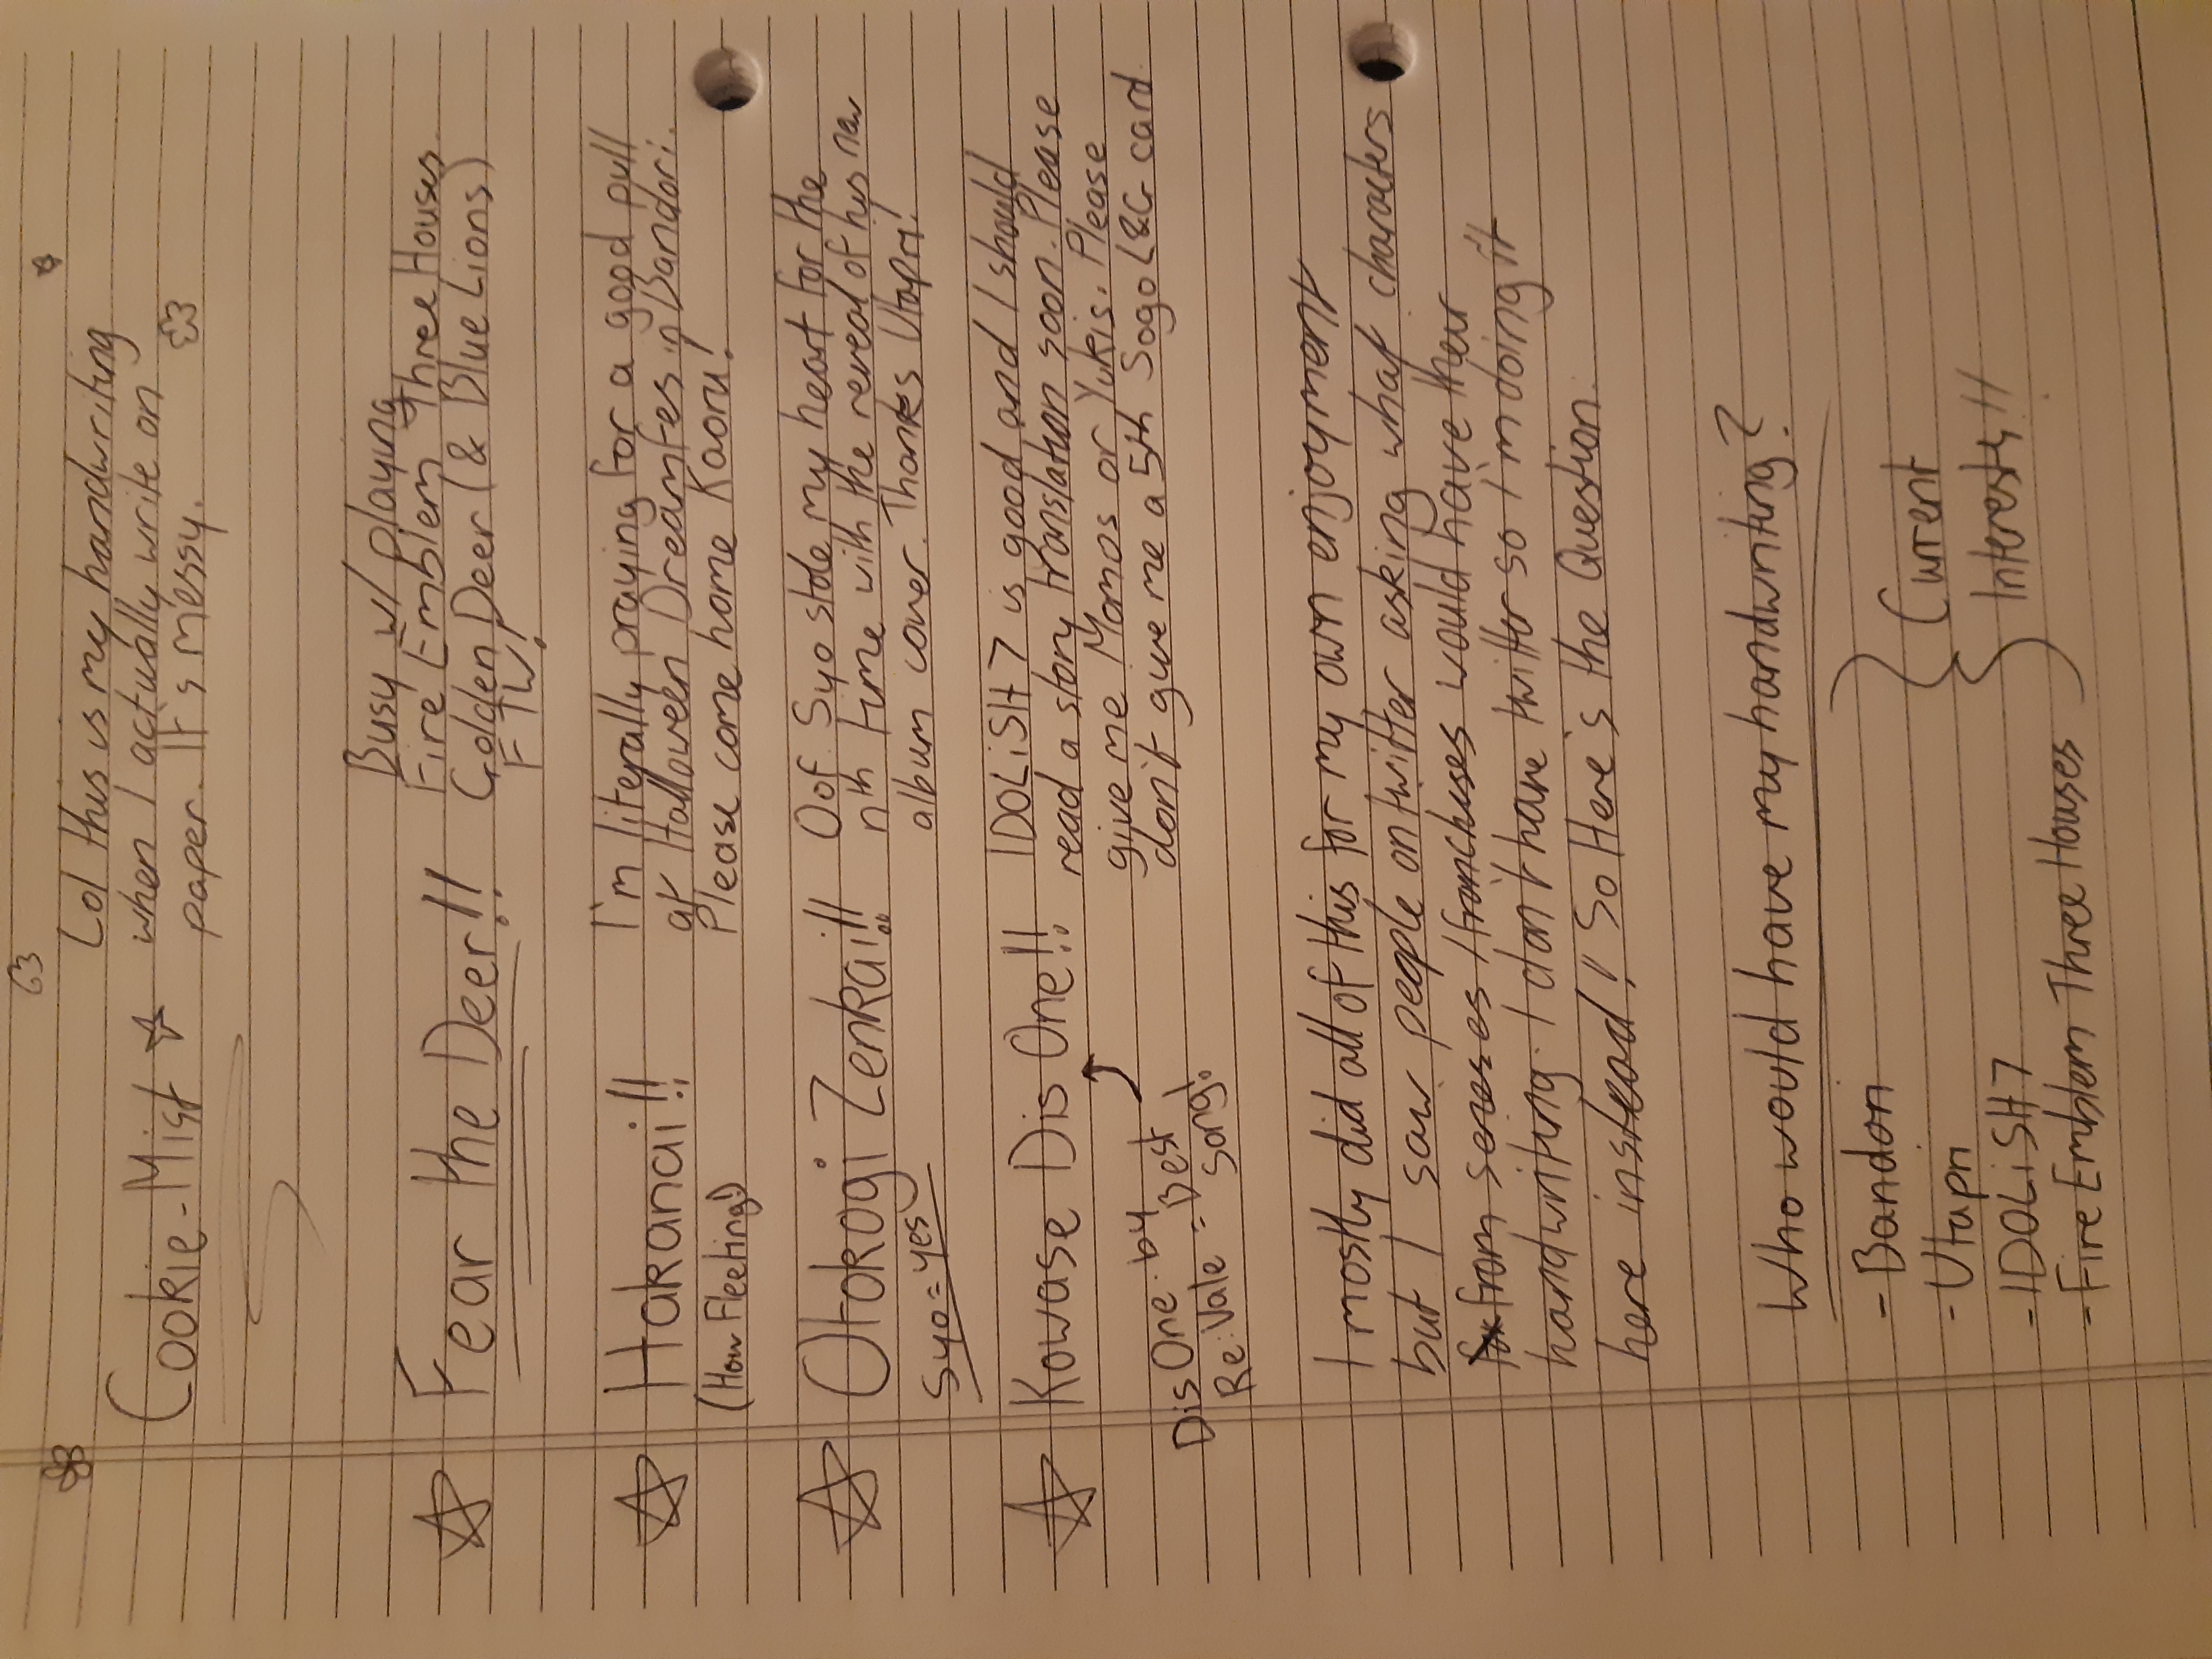 Cookie-Mist
Lol this is my handwriting
when I actually write on
paper. It's messy.
Fear the Deer!!
Busy w/ playing
Fire Emblem Three Houses
Golden Deer (& Blue Lions)
FTW!
Hakanai!!
(How Fleeting!)
I'm literally praying for a good pull
at Halloween Dreamfes in Bandori.
Please come home Kaoru!
Otokogi Zenkai!!
Syo = yes
Oof. Syo stole my heart for the
nth time with the reveal of his new
album cover. Thanks Utapri!
Kowase Dis One!!
IDOLiSH7 is good and I should
read a story translation soon. Please
give me Momos or Yukis. Please
don't give me a 5th Sogo L&G card.
Dis One. by
Re:Vale = Best
Song!
I mostly did all of this for my own enjoyment
but I saw people on twitter asking what characters
from series / franchises would have their
handwriting. I don't have twitter so I'm doing it
here instead! So Here's the Question.
Who would have my handwriting?
- Bandori
- Utapri
- IDOLiSH7
- Fire Emblem Three Houses
Current
Interests!!